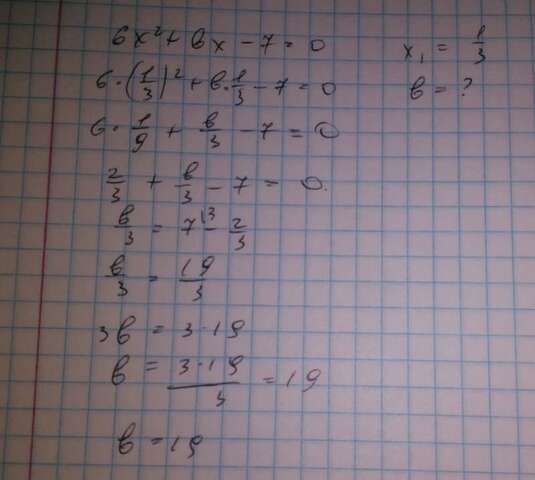 6x² + вx − 7 = 0 x₁ = 1/3
6·(1/3)² + в·1/3 − 7 = 0 в = ?
6·1/9 + в/3 − 7 = 0
2/3 + в/3 − 7 = 0.
в/3 = 7^(3 − 2/3
в/3 = 19/3
3в = 3·19
в = 3·19/3 = 19
в = 19